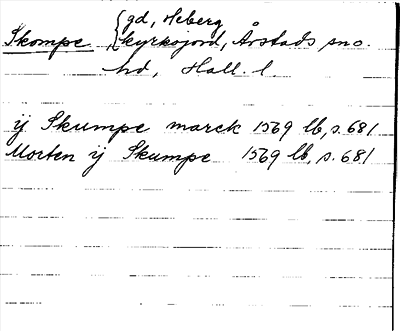 Skompe { gd, Heberg
{ kyrkojord, Årstads sno.
hd, Hall. l.
ij Skumpe marck 1569 lb, s. 681
Morten ij Skumpe 1569 lb, s. 681